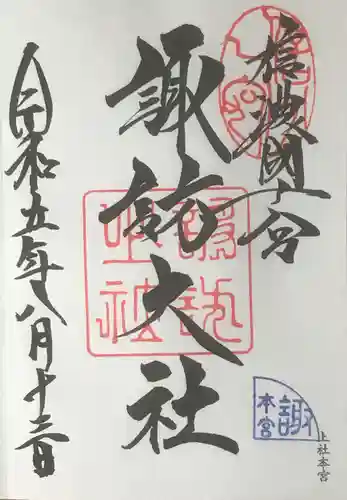 信濃國一宮
諏訪大社
令和五年八月十三日
諏訪
大社
諏
本宮
上社本宮